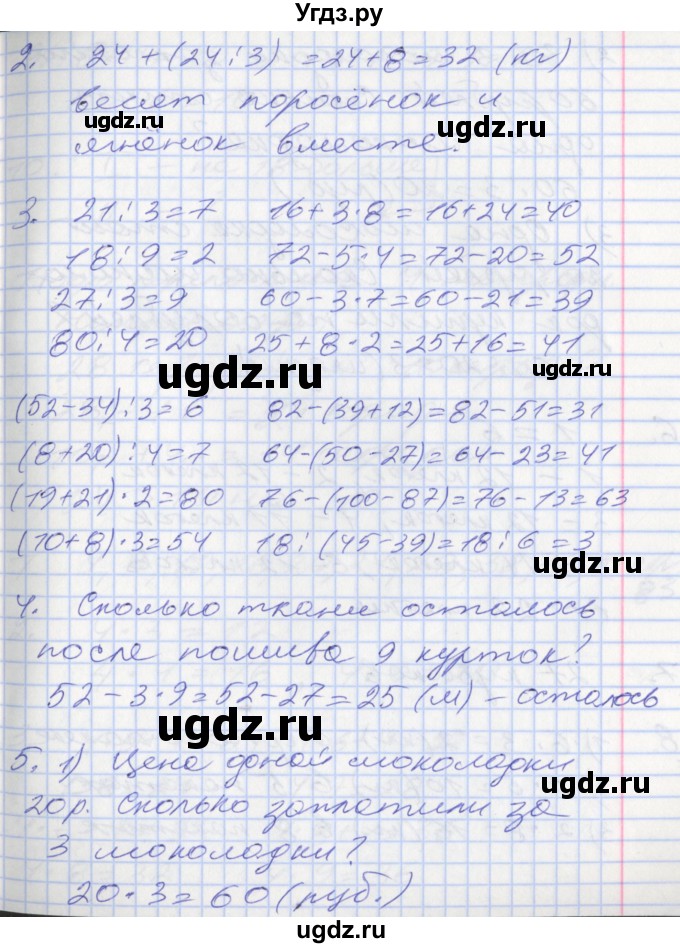 Угдз.ру
2. 24 + (24 : 3) = 24 + 8 = 32 (кг)
весят поросёнок и
ugdz.ru ugdz.ru
ягнёнок вместе.
3. 21 : 3 = 7 16 + 3 · 8 = 16 + 24 = 40
18 : 9 = 2 72 - 5 · 4 = 72 - 20 = 52
27 : 3 = 9 60 - 3 · 7 = 60 - 21 = 39
80 : 4 = 20 25 + 8 · 2 = 25 + 16 = 41
ugdz.ru ugdz.ru
(52 - 34) : 3 = 6 82 - (39 + 12) = 82 - 51 = 31
(8 + 20) : 4 = 7 64 - (50 - 27) = 64 - 23 = 41
ugdz.ru
(19 + 21) · 2 = 80 76 - (100 - 87) = 76 - 13 = 63
(10 + 8) · 3 = 54 18 : (45 - 39) = 18 : 6 = 3
ugdz.ru ugdz.ru
4. Сколько ткани осталось
после пошива 9 курток?
52 - 3 · 9 = 52 - 27 = 25 (м) - осталось
ugdz.ru ugdz.ru
5. 1) Цена одной шоколадки
ugdz.ru
20 р. Сколько заплатили за
3 шоколадки?
ugdz.ru
20 · 3 = 60 (руб.)